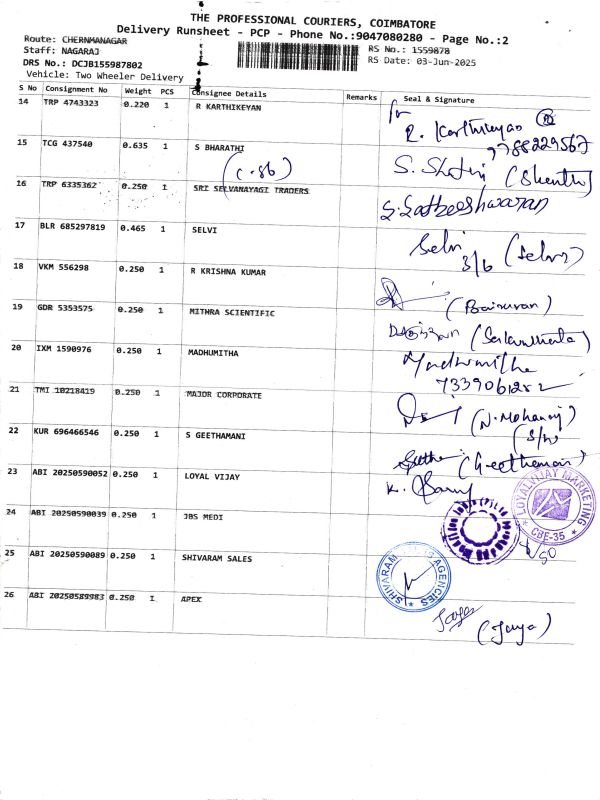 THE PROFESSIONAL COURIERS, COIMBATORE
Delivery Runsheet - PCP - Phone No.:9047080280 - Page No.:2
Route: CHERNMANAGAR
RS No.: 1559878
Staff: NAGARAJ
RS Date: 03-Jun-2025
DRS No.: DCJB155987802
Vehicle: Two Wheeler Delivery
S No Consignment No Weight PCS Consignee Details Remarks Seal & Signature
14 TRP 4743323 0.220 1 R KARTHIKEYAN
R. Karthikeyan
9788229567
15 TCG 437540 0.635 1 S BHARATHI
(C.Sb)
16 TRP 6335362 0.250 1 SRI SELVANAYAGI TRADERS
S. Satheeshwaran
17 BLR 685297819 0.465 1 SELVI
Selvi (Selvi)
3/6
18 VKM 556298 0.250 1 R KRISHNA KUMAR
19 GDR 5353575 0.250 1 MITHRA SCIENTIFIC
20 IXM 1590976 0.250 1 MADHUMITHA
Madhumitha
7339061252
21 TMI 10218419 0.250 1 MAJOR CORPORATE
(N. Mohanraj)
22 KUR 696466546 0.250 1 S GEETHAMANI
(Geethamani)
23 ABI 20250590052 0.250 1 LOYAL VIJAY
LOYALVIJAY MARKETING
CBE-35
24 ABI 20250590039 0.250 1 JBS MEDI
25 ABI 20250590089 0.250 1 SHIVARAM SALES
SHIVARAM AGENCIES
26 ABI 20250589983 0.250 1 APEX
Jaya
(Jaya)